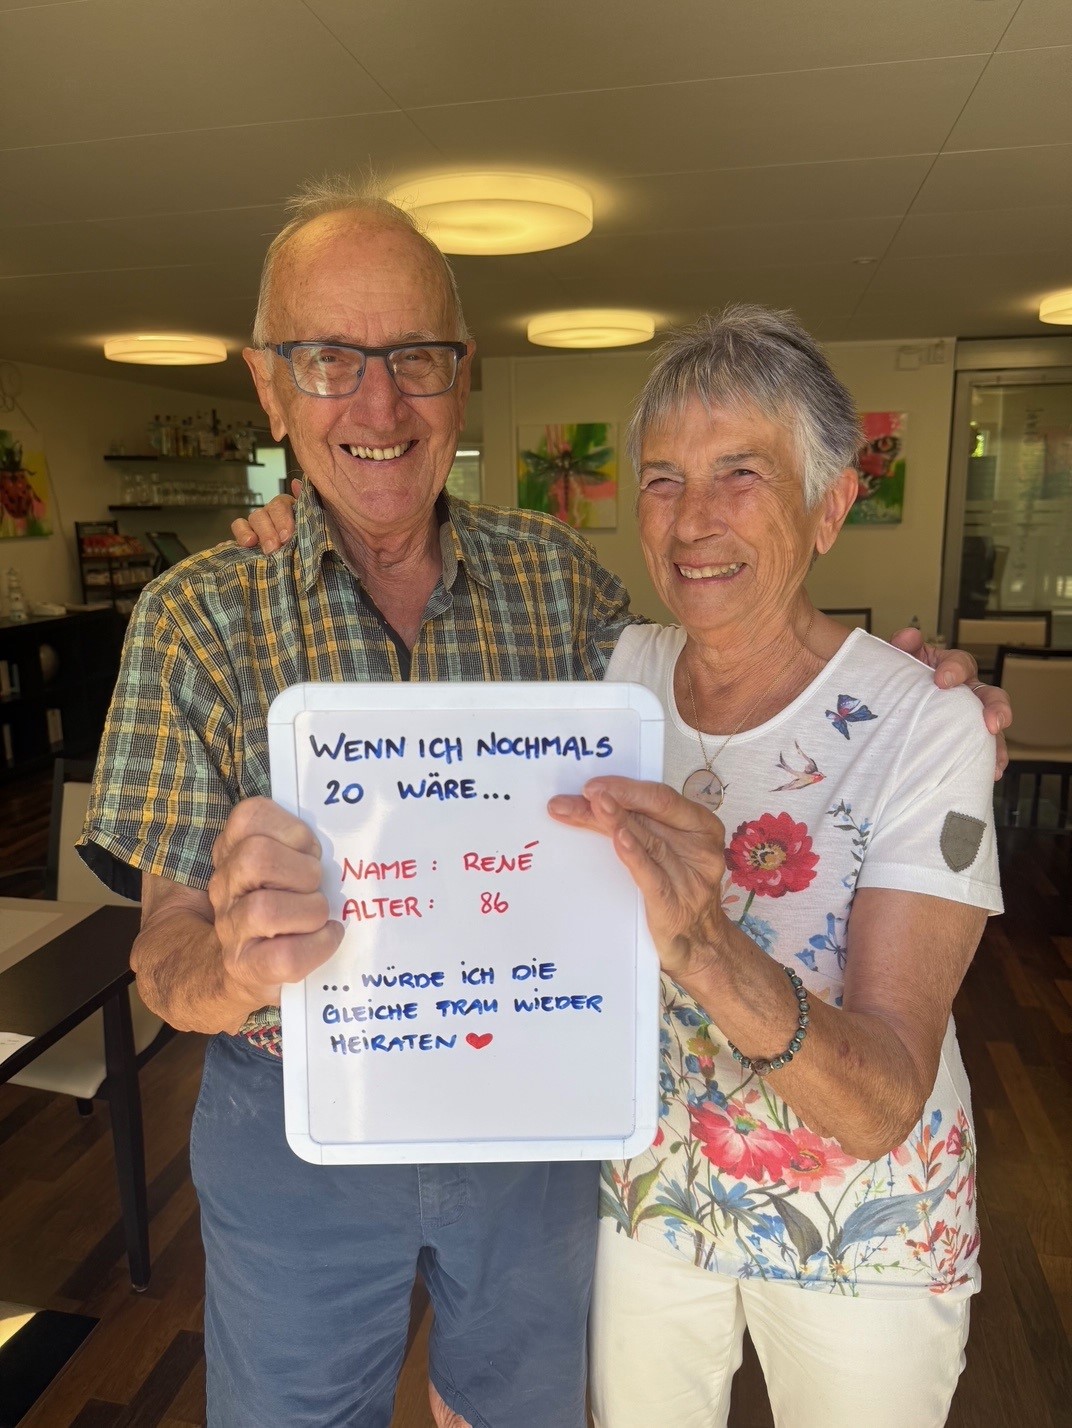 WENN ICH NOCHMALS
20 WÄRE...
NAME: RENÉ
ALTER: 86
... WÜRDE ICH DIE
GLEICHE FRAU WIEDER
HEIRATEN ❤